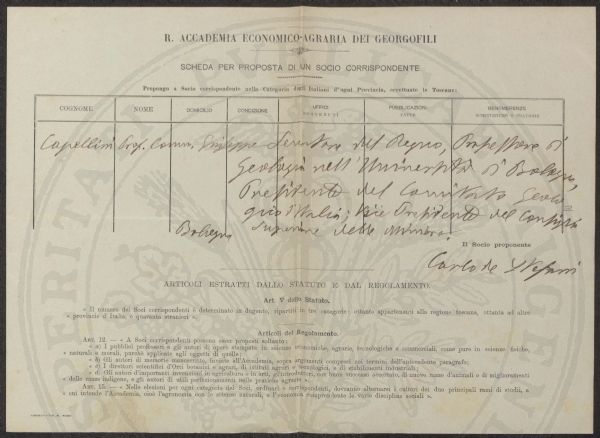 R. ACCADEMIA ECONOMICO-AGRARIA DEI GEORGOFILI
SCHEDA PER PROPOSTA DI UN SOCIO CORRISPONDENTE
Propongo a Socio corrispondente nella Categoria degli Italiani d'ogni Provincia, eccettuate le Toscane:
COGNOME NOME DOMICILIO CONDIZIONE UFFICI PUBBLICAZIONI FATTE BENEMERENZE
Capellini Prof. Comm. Giuseppe Senatore del Regno, Professore di
Geologia nell'Università di Bologna,
Presidente del Comitato Geolo
gico d'Italia; Vice Presidente del Consiglio
Bologna Superiore delle Miniere
Il Socio proponente
Carlo de Stefani
ARTICOLI ESTRATTI DALLO STATUTO E DAL REGOLAMENTO.
Art. V dello Statuto.
« Il numero dei Soci corrispondenti è determinato in dugento, ripartiti in tre categorie: ottanta appartenenti alla regione toscana, ottanta ad altre
« provincie d'Italia e quaranta stranieri ».
Articoli del Regolamento.
Art. 12. — « A Soci corrispondenti possono esser proposti soltanto:
« a) I pubblici professori e gli autori di opere stampate in scienze economiche, agrarie, tecnologiche e commerciali, come pure in scienze fisiche,
« naturali e morali, purchè applicate agli oggetti di quelle;
« b) Gli autori di memorie manoscritte, fornite all'Accademia, sopra argomenti compresi nei termini dell'antecedente paragrafo;
« c) I direttori scientifici d'Orti botanici e agrari, di istituti agrari e tecnologici, e di stabilimenti industriali;
« d) Gli autori d'importanti invenzioni in agricoltura e in arti, gl'introduttori, con buon successo accertato, di nuove razze d'animali e di miglioramenti
« delle razze indigene, e gli autori di utili perfezionamenti nelle pratiche agrarie ».
Art. 15. — « Nelle elezioni per ogni categoria dei Soci, ordinari e corrispondenti, dovranno alternarsi i cultori dei due principali rami di studii, a
« cui intende l'Accademia, cioè l'agronomia con le scienze naturali, e l'economia pura con le varie discipline sociali ».